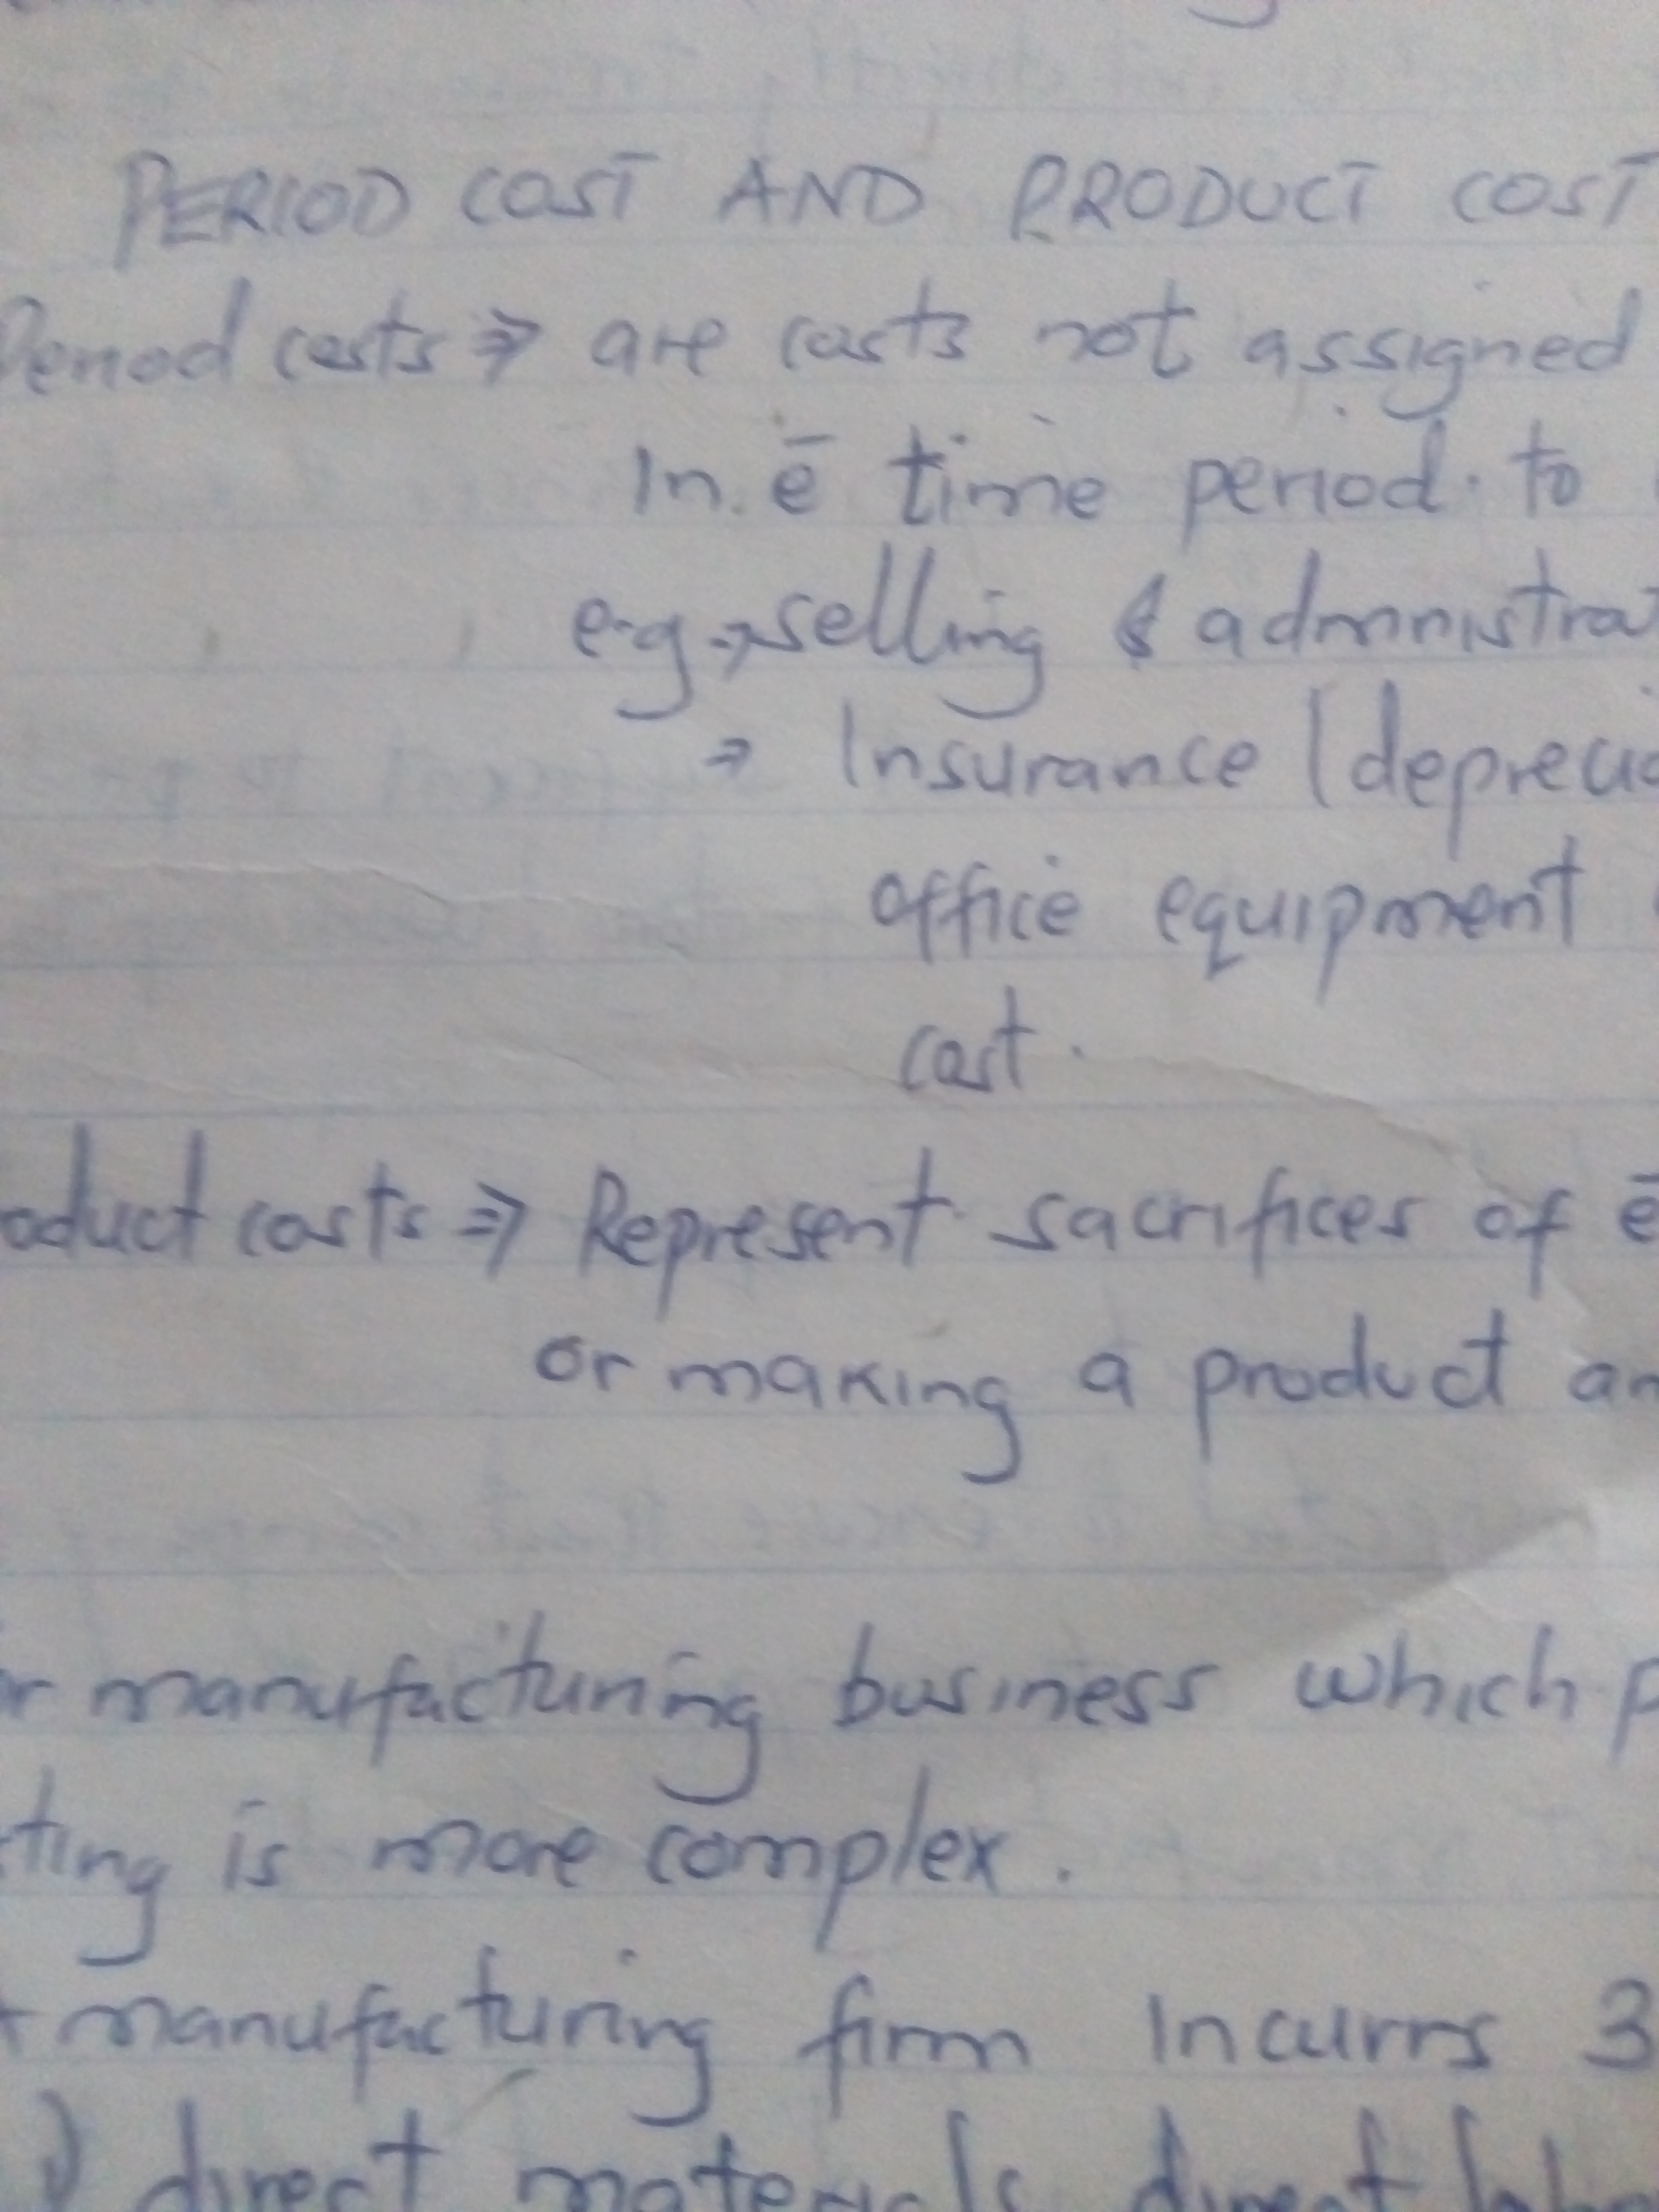 PERIOD COST AND PRODUCT COST
Period costs ⇒ are costs not assigned
In ē time period to
e.g → selling & administrat
⇒ Insurance / deprecia
office equipment
cost.
oduct costs ⇒ Represent sacrifices of ē
or making a product an
r manufacturing business which p
ting is more complex.
manufacturing firm Incurrs 3
) direct materials, direct lab